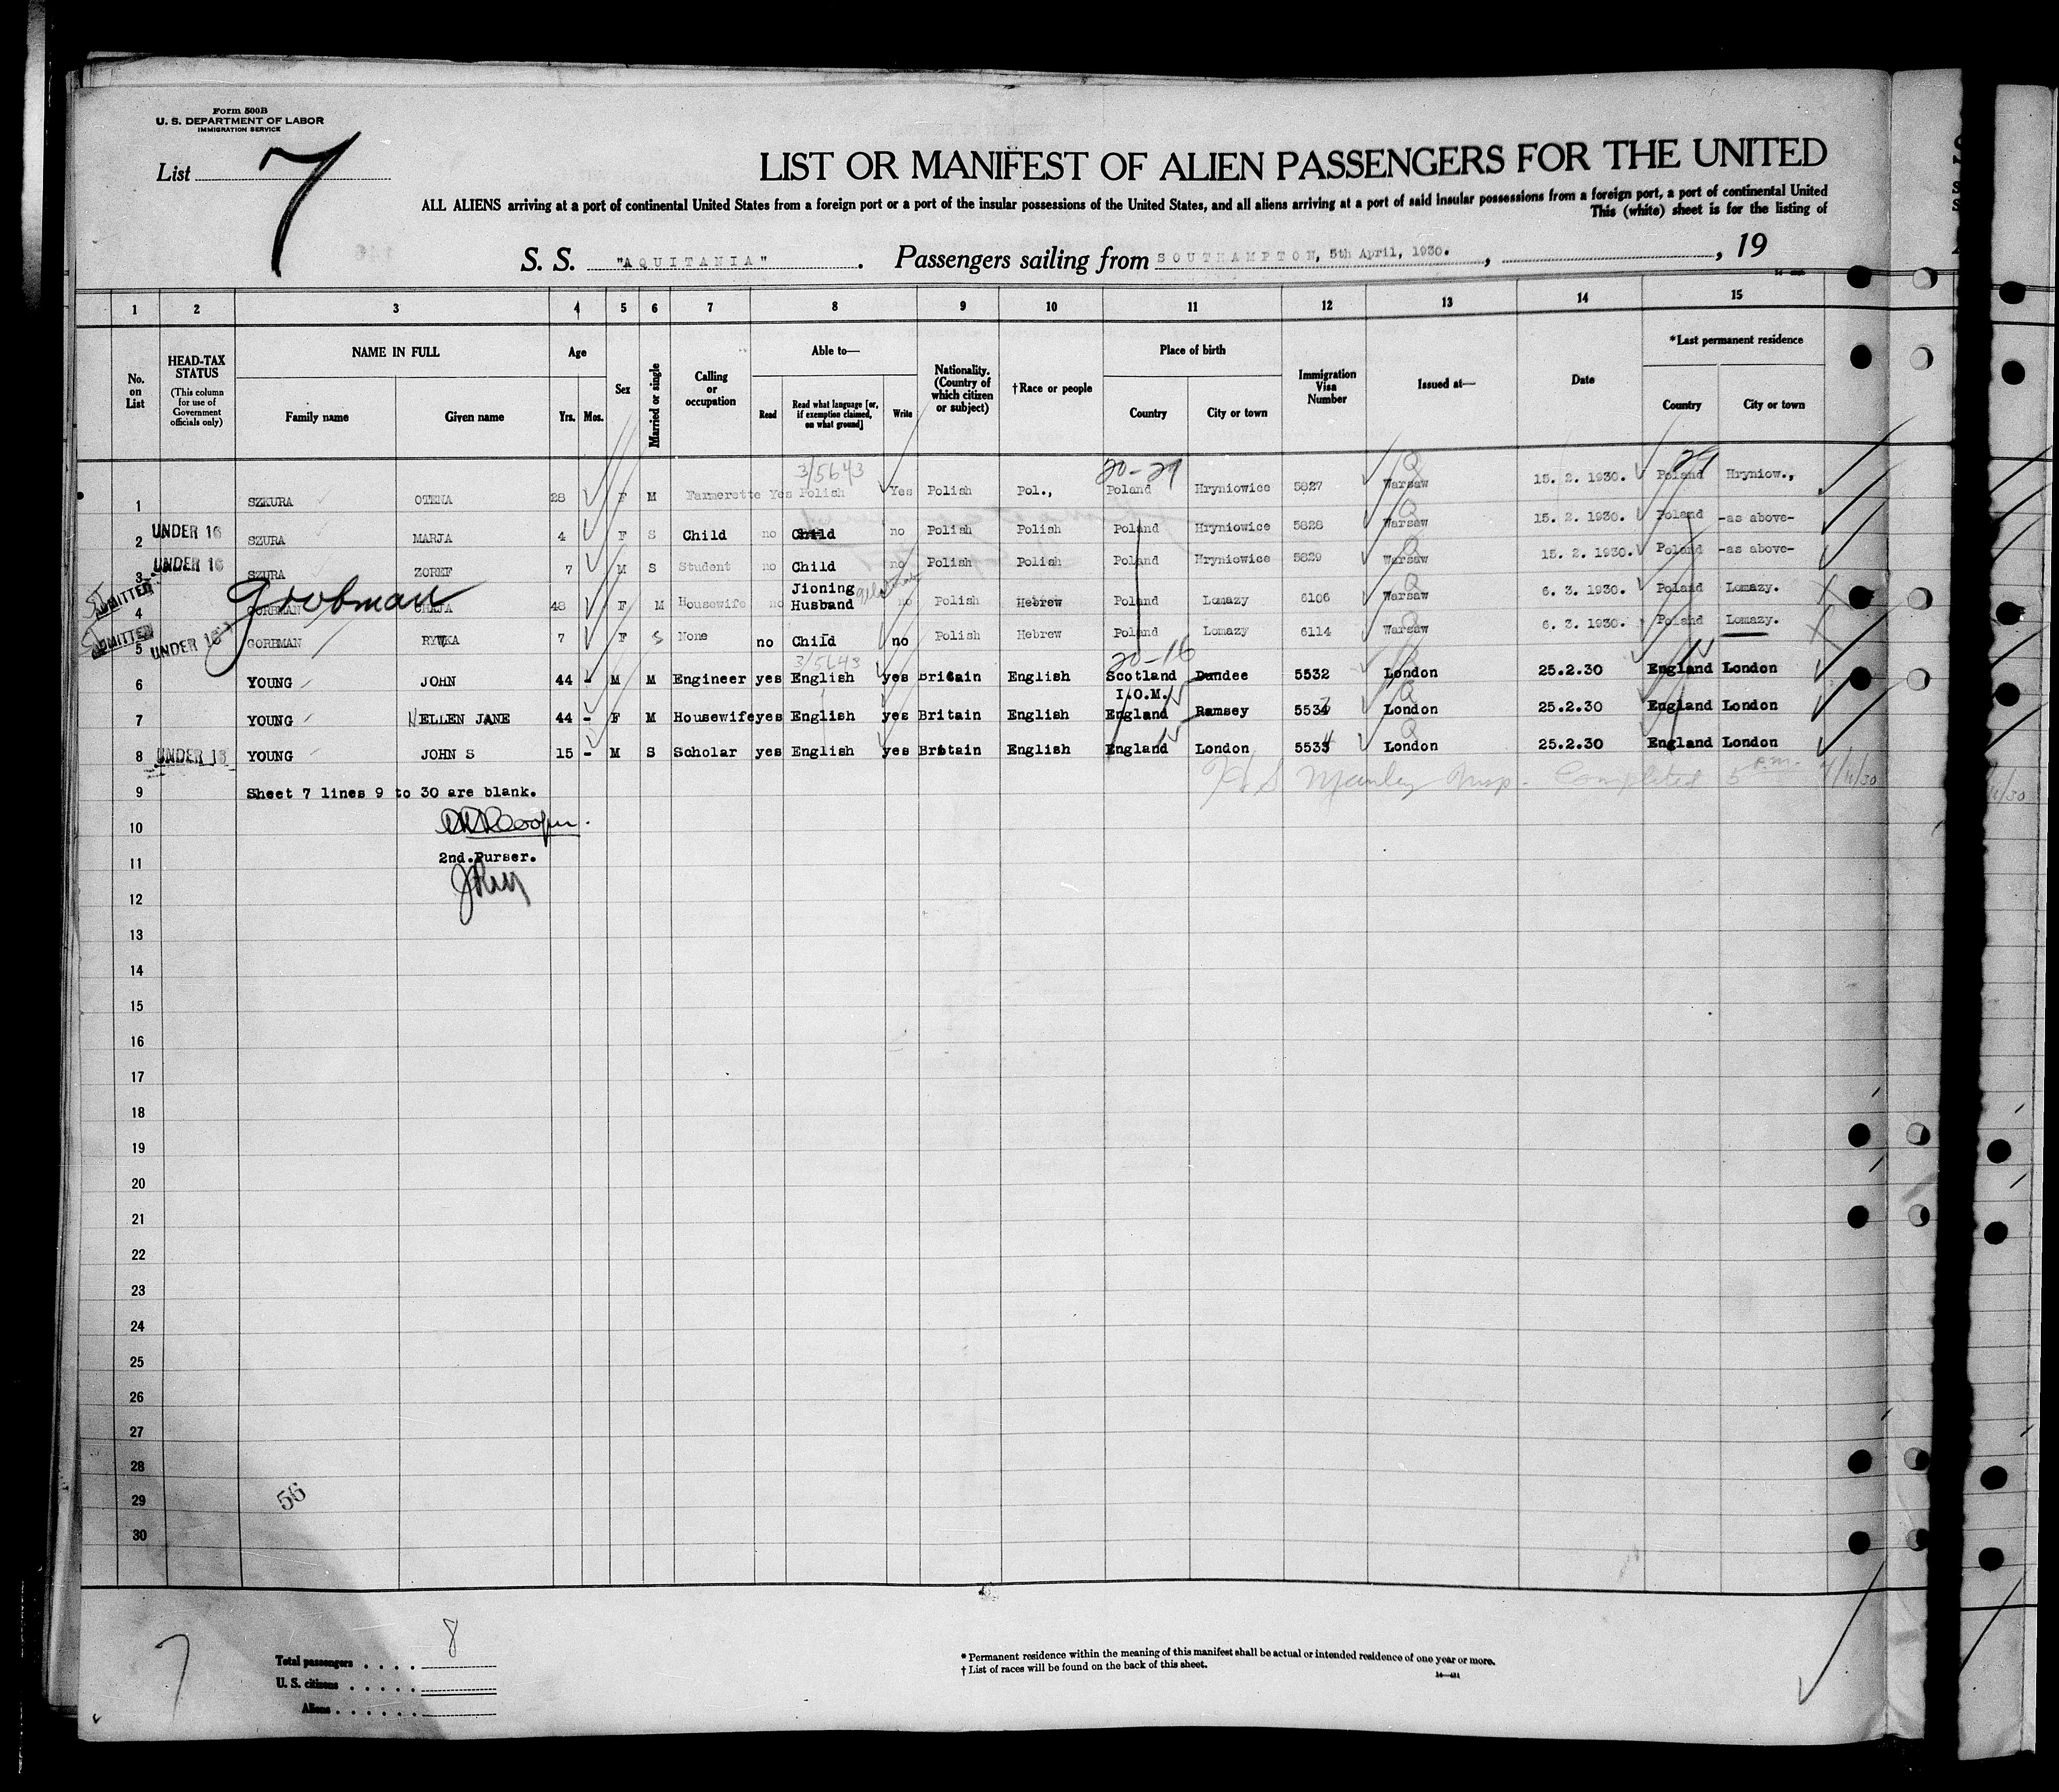 Form 500B
U. S. DEPARTMENT OF LABOR
IMMIGRATION SERVICE
List 7
LIST OR MANIFEST OF ALIEN PASSENGERS FOR THE UNITED
ALL ALIENS arriving at a port of continental United States from a foreign port or a port of the insular possessions of the United States, and all aliens arriving at a port of said insular possessions from a foreign port, a port of continental United
This (white) sheet is for the listing of
S. S. "AQUITANIA". Passengers sailing from SOUTHAMPTON, 5th April, 1930. , , 19
1 2 3 4 5 6 7 8 9 10 11 12 13 14 15
No. on List
HEAD-TAX STATUS
(This column for use of Government officials only)
NAME IN FULL
Family name Given name
Age
Yrs. Mos.
Sex
Married or single
Calling or occupation
Able to—
Read Read what language [or, if exemption claimed, on what ground] Write
Nationality. (Country of which citizen or subject)
†Race or people
Place of birth
Country City or town
Immigration Visa Number
Issued at—
Date
*Last permanent residence
Country City or town
3/5643 20-29 29
1 SZKURA OTENA 28 F M Farmerette Yes Polish Yes Polish Pol., Poland Hryniowice 5827 Warsaw 15. 2. 1930. Poland Hryniow.,
2 UNDER 16 SZURA MARJA 4 F S Child no Child no Polish Polish Poland Hryniowice 5828 Warsaw 15. 2. 1930. Poland -as above-
3 UNDER 16 SZURA ZOREF 7 M S Student no Child no Polish Polish Poland Hryniowice 5829 Warsaw 15. 2. 1930. Poland -as above-
ADMITTED Goobman
4 GORBMAN CHAJA 48 F M Housewife no Jioning Husband no Polish Hebrew Poland Lomazy 6106 Warsaw 6. 3. 1930. Poland Lomazy.
ADMITTED
5 UNDER 16 GORBMAN RYWKA 7 F S None no Child no Polish Hebrew Poland Lomazy 6114 Warsaw 6. 3. 1930. Poland Lomazy.
3/5643 20-16
6 YOUNG JOHN 44 - M M Engineer yes English yes Britain English Scotland Dundee 5532 London 25.2.30 England London
I.O.M.
7 YOUNG ELLEN JANE 44 - F M Housewife yes English yes Britain English England Ramsey 5537 London 25.2.30 England London
8 UNDER 16 YOUNG JOHN S 15 - M S Scholar yes English yes Britain English England London 5534 London 25.2.30 England London
Manley Insp. Completed 5 P.M. 4/11/30
9 Sheet 7 lines 9 to 30 are blank.
10
11 2nd.Purser.
12
13
14
15
16
17
18
19
20
21
22
23
24
25
26
27
28
29 56
30
7
Total passengers . . . . 8
U. S. citizens . . . . .
Aliens . . . . . .
* Permanent residence within the meaning of this manifest shall be actual or intended residence of one year or more.
† List of races will be found on the back of this sheet.